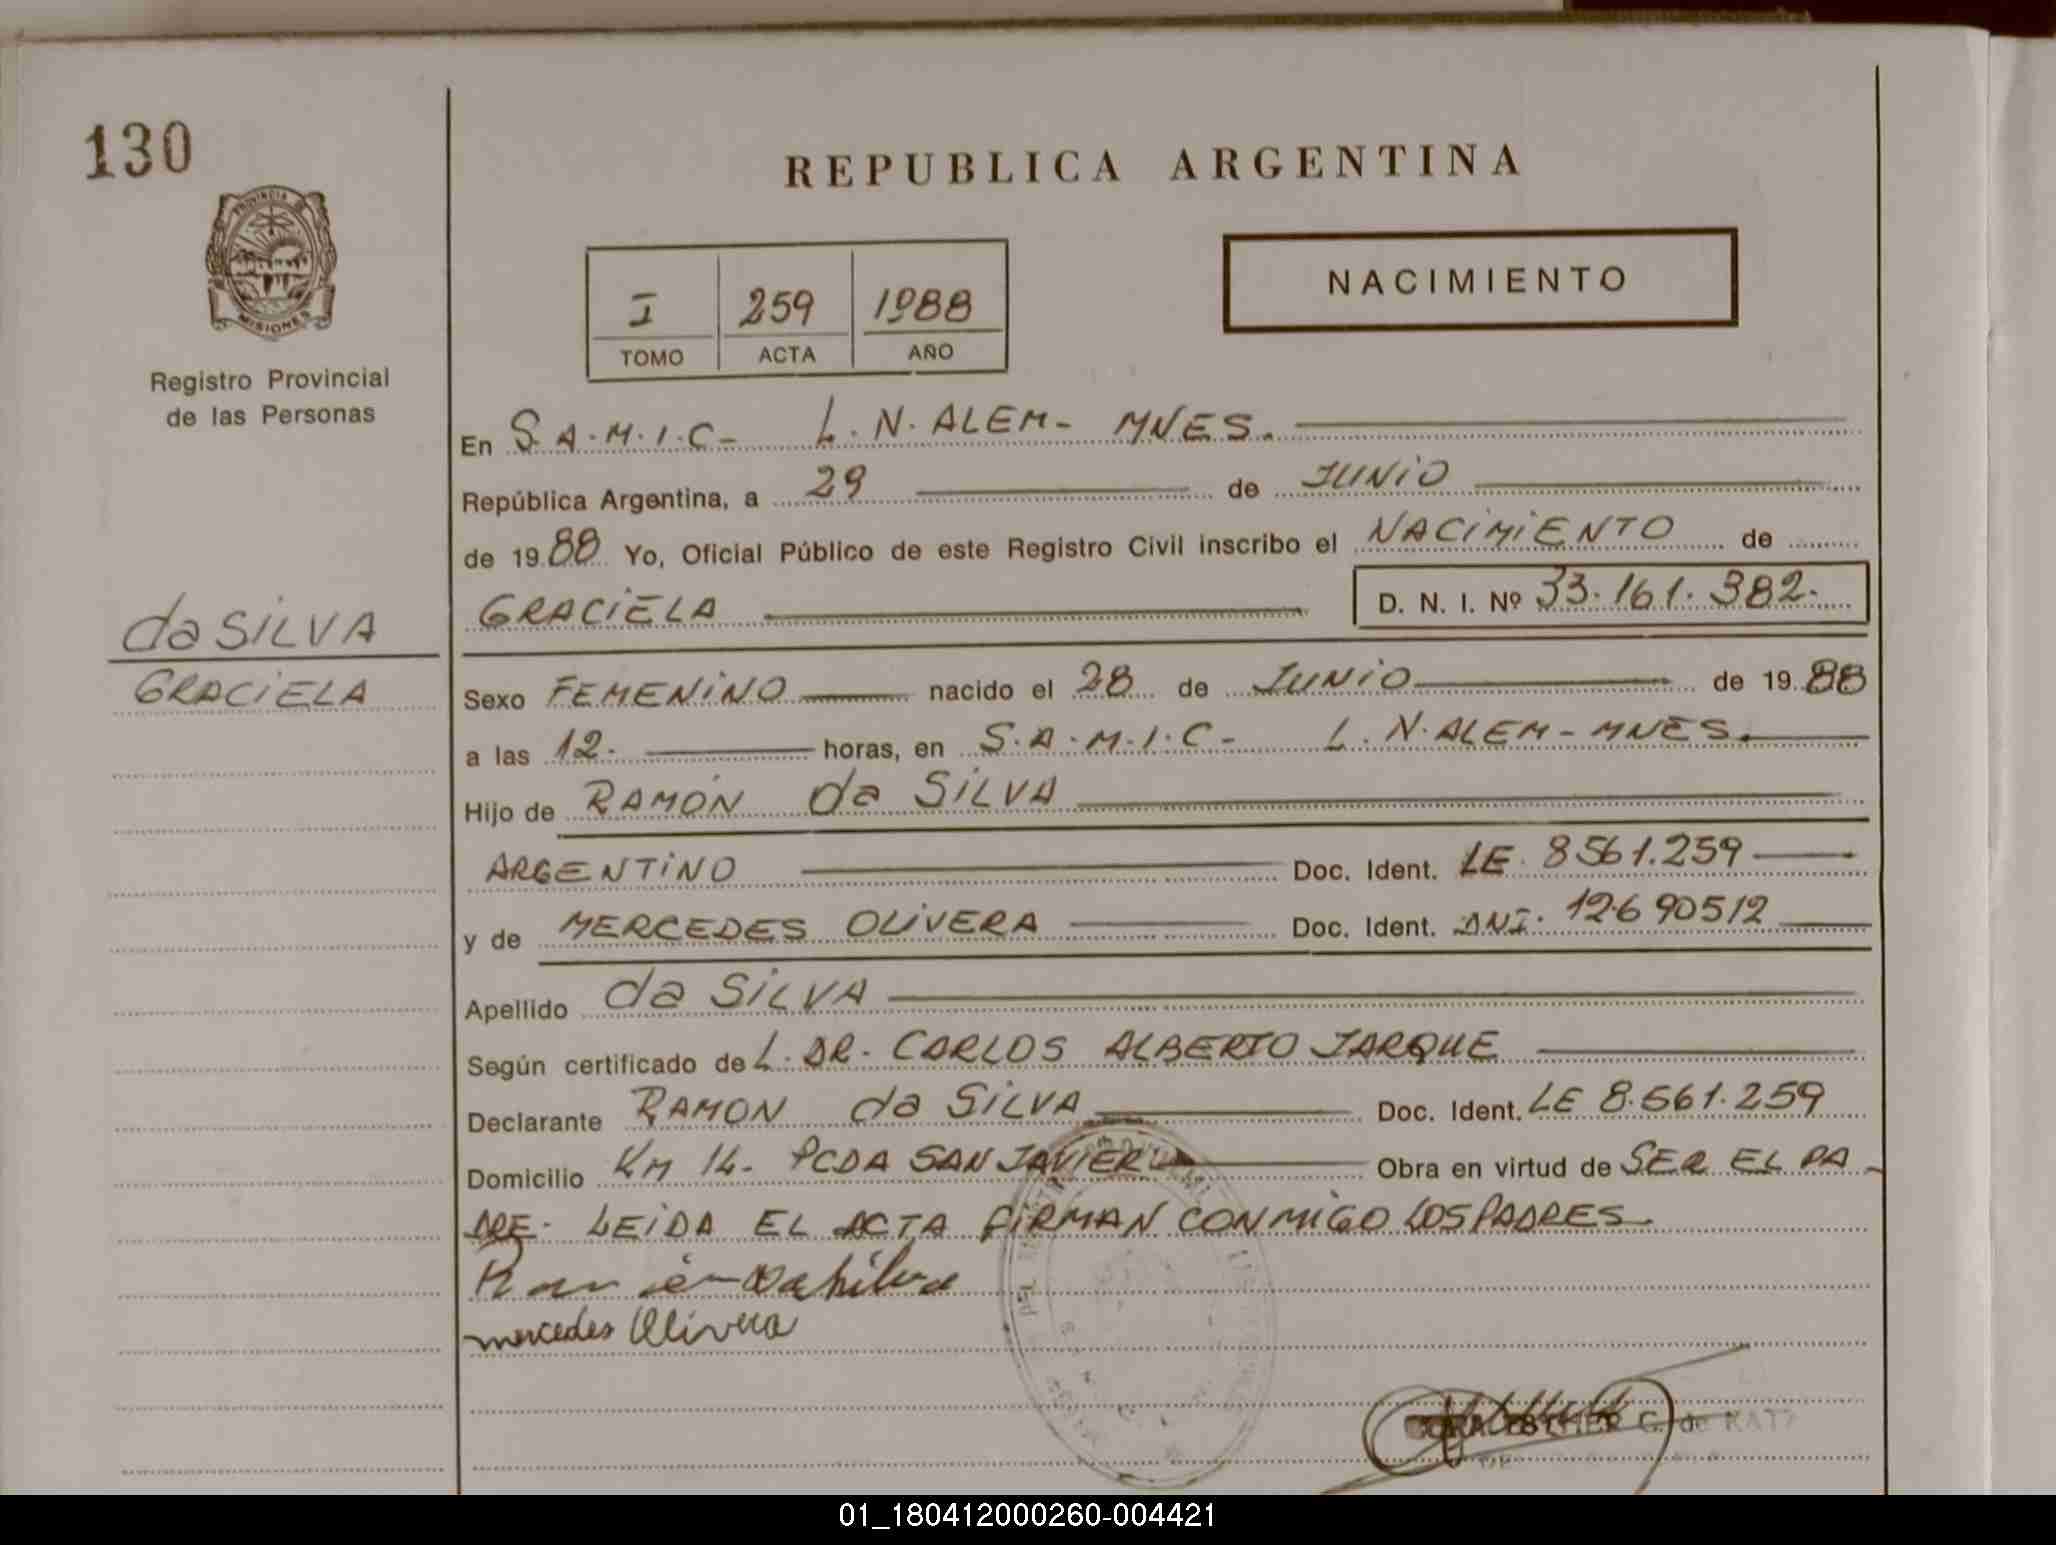 130
REPUBLICA ARGENTINA
PROVINCIA
MISIONES
Registro Provincial
de las Personas
NACIMIENTO
I 259 1988
TOMO ACTA AÑO
En S.A.M.I.C- L.N.ALEM- MNES.
República Argentina, a 29 de JUNIO
de 1988 Yo, Oficial Público de este Registro Civil inscribo el NACIMIENTO de
GRACIELA D. N. I. Nº 33.161.382.
da SILVA
GRACIELA
Sexo FEMENINO nacido el 28 de JUNIO de 1988
a las 12. horas, en S.A.M.I.C- L.N.ALEM-MNES.
Hijo de RAMÓN da SILVA
ARGENTINO Doc. Ident. LE. 8561.259
y de MERCEDES OLIVERA Doc. Ident. DNI. 12.690512
Apellido da SILVA
Según certificado de L. DR. CARLOS ALBERTO JARQUE
Declarante RAMON da SILVA Doc. Ident. LE 8.561.259
Domicilio KM 14- PCDA SAN JAVIER Obra en virtud de SER EL PA-
DRE- LEIDA EL ACTA FIRMAN CONMIGO LOS PADRES
Ramón Da silva
mercedes Olivera
ESTHER G. de KATZ
01_180412000260-004421